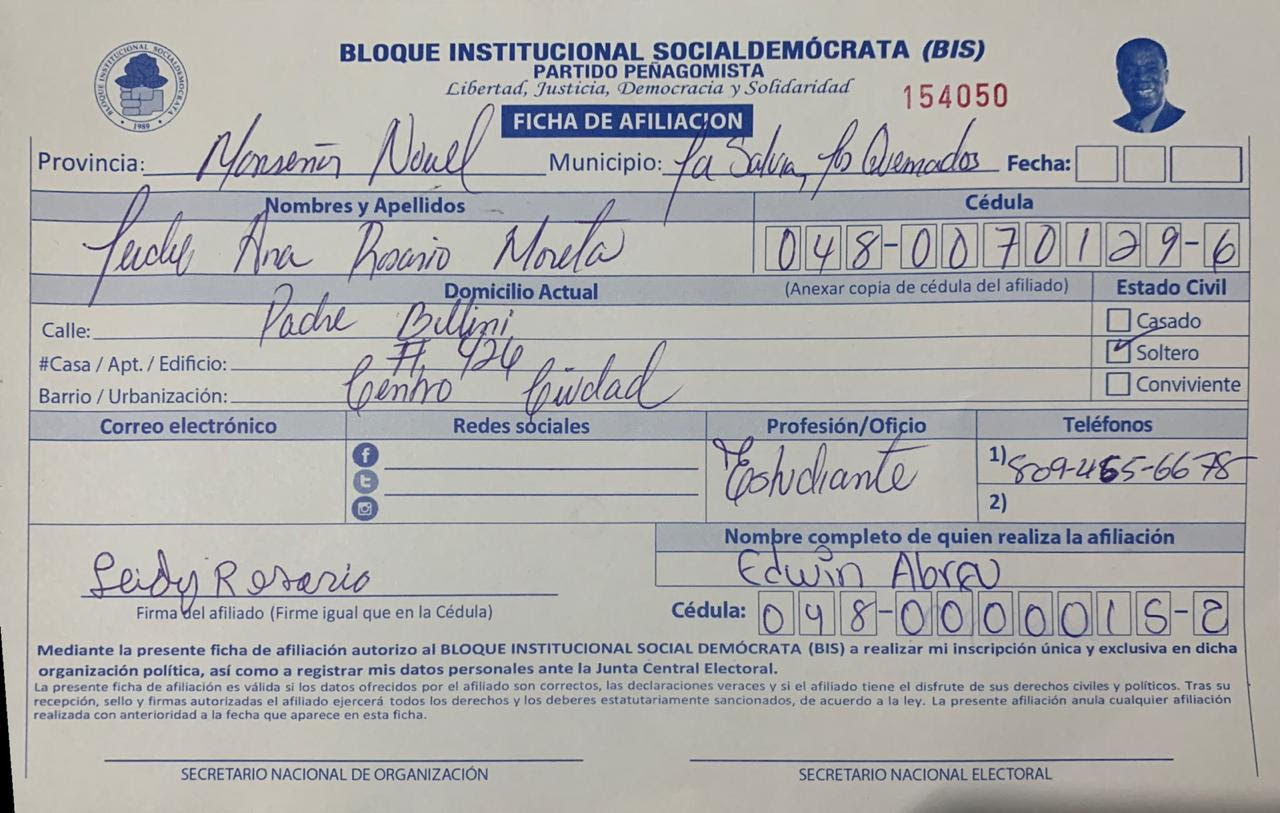 BLOQUE INSTITUCIONAL SOCIALDEMÓCRATA (BIS)
PARTIDO PEÑAGOMISTA
Libertad, Justicia, Democracia y Solidaridad
154050
BLOQUE INSTITUCIONAL SOCIALDEMOCRATA
1989
FICHA DE AFILIACION
Provincia: Monseñor Nouel Municipio: La Salvia, Los Quemados Fecha:
Nombres y Apellidos Cédula
Leidy Ana Rosario Moreta 048-0070129-6
Domicilio Actual (Anexar copia de cédula del afiliado) Estado Civil
Calle: Padre Billini Casado
#Casa / Apt. / Edificio: #. 426 Soltero
Barrio / Urbanización: Centro Ciudad Conviviente
Correo electrónico Redes sociales Profesión/Oficio Teléfonos
Estudiante 1) 809-465-6678
2)
Nombre completo de quien realiza la afiliación
Leidy Rosario Edwin Abreu
Firma del afiliado (Firme igual que en la Cédula) Cédula: 048-0000015-2
Mediante la presente ficha de afiliación autorizo al BLOQUE INSTITUCIONAL SOCIAL DEMÓCRATA (BIS) a realizar mi inscripción única y exclusiva en dicha
organización política, así como a registrar mis datos personales ante la Junta Central Electoral.
La presente ficha de afiliación es válida si los datos ofrecidos por el afiliado son correctos, las declaraciones veraces y si el afiliado tiene el disfrute de sus derechos civiles y políticos. Tras su
recepción, sello y firmas autorizadas el afiliado ejercerá todos los derechos y los deberes estatutariamente sancionados, de acuerdo a la ley. La presente afiliación anula cualquier afiliación
realizada con anterioridad a la fecha que aparece en esta ficha.
SECRETARIO NACIONAL DE ORGANIZACIÓN SECRETARIO NACIONAL ELECTORAL